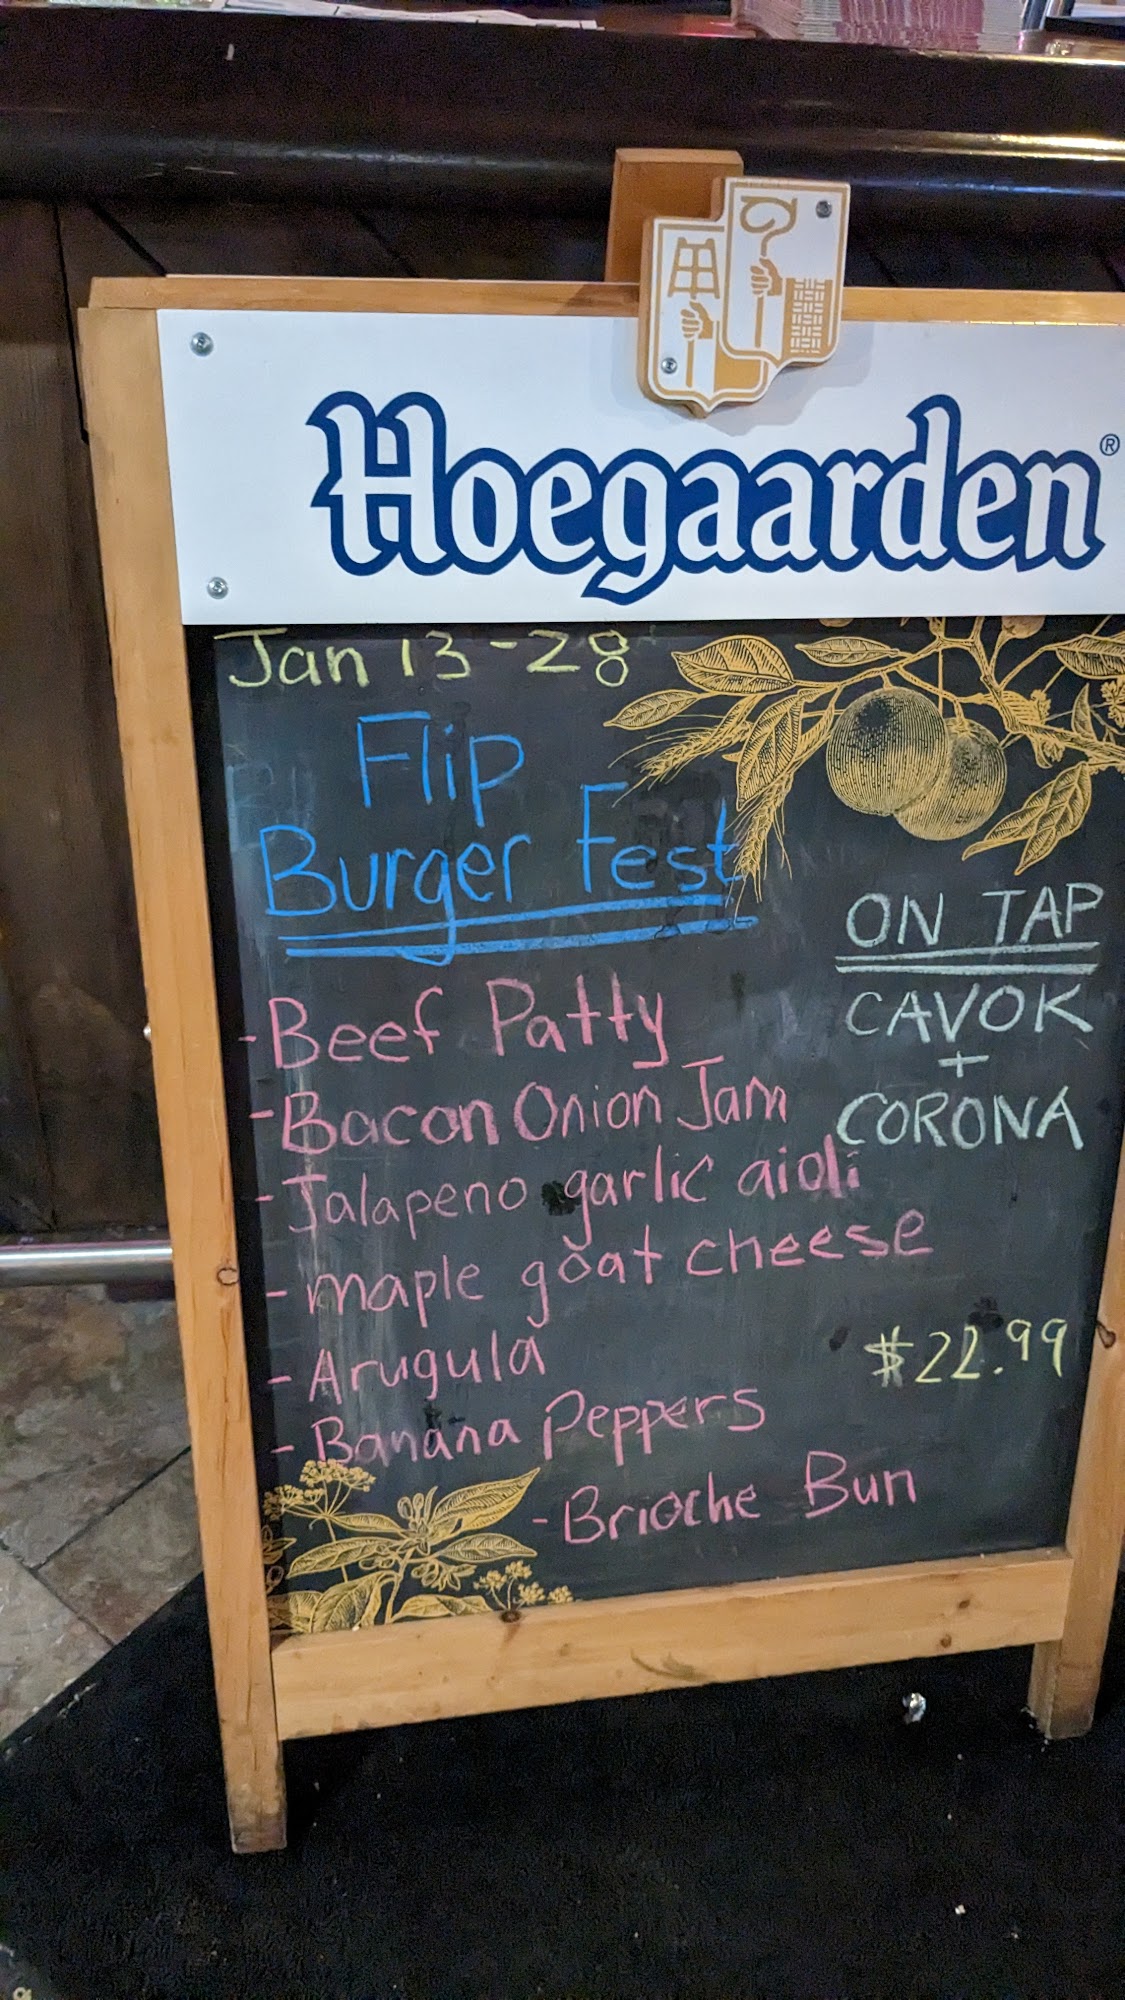 Hoegaarden®
Jan 13-28
Flip
Burger Fest
- Beef Patty
- Bacon Onion Jam
- Jalapeno garlic aioli
- maple goat cheese
- Arugula
- Banana Peppers
- Brioche Bun
ON TAP
CAVOK
+
CORONA
$22.99